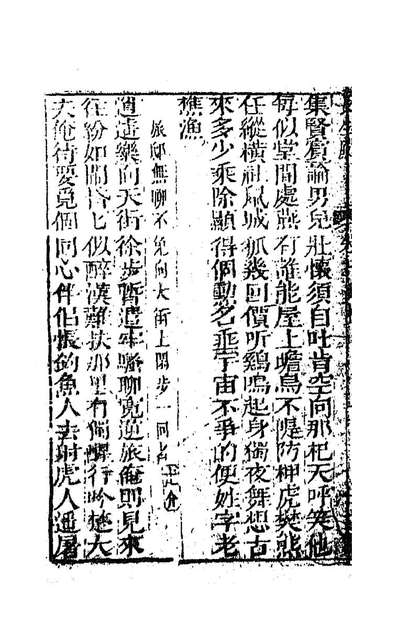 集賢賓論男兒壯懷須自吐肯空向那杞天呼笑他
每似堂間處燕有誰能屋上瞻烏不隄防柙虎樊熊
任縱橫社鼠城狐幾回價聽鷄鳴起身獨夜舞想古
來多少乘除顯得個勳名垂宇宙不爭的便姓字老
樵漁
旅邸無聊不免向大街上閒步一回者
逍遥樂向天街徐步暫遣牢騷聊寛逆旅俺則見來
往紛如鬧昏七似醉漢難扶那里有個醒行吟楚大
夫俺待要覓個同心伴侶悵釣魚人去射虎人遥屠